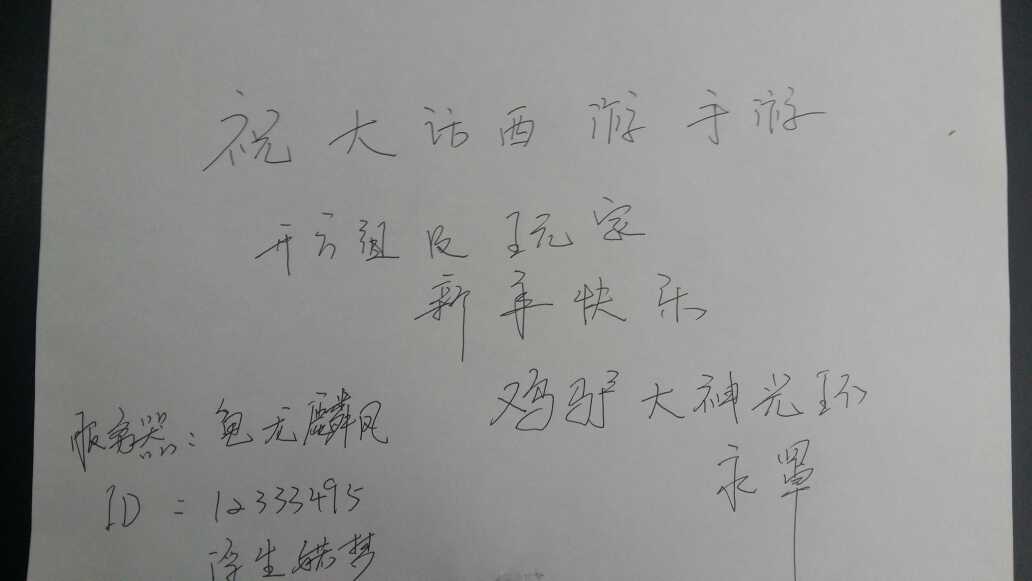 祝大话西游手游
开方组及玩家
新年快乐
鸡驴大神光环
永罩
服务器：龟龙麟凤
ID：12333495
浮生 梦